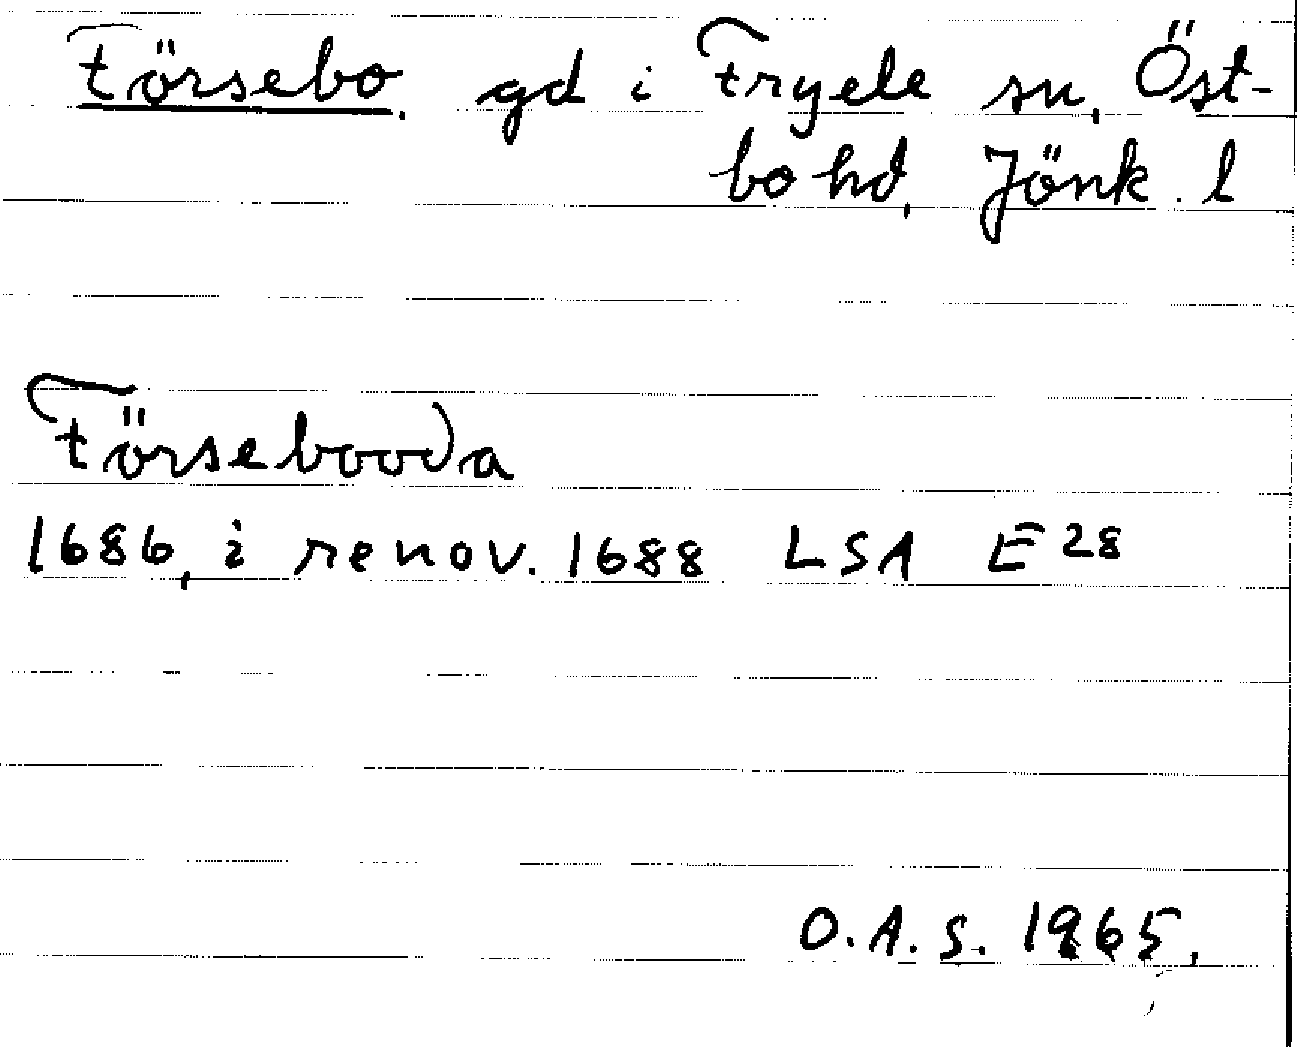 Försebo, gd i Fryele sn, Öst-
bo hd, Jönk. l
Försebooda
1686, i renov. 1688 LSA E 28
O.A.S. 1965.